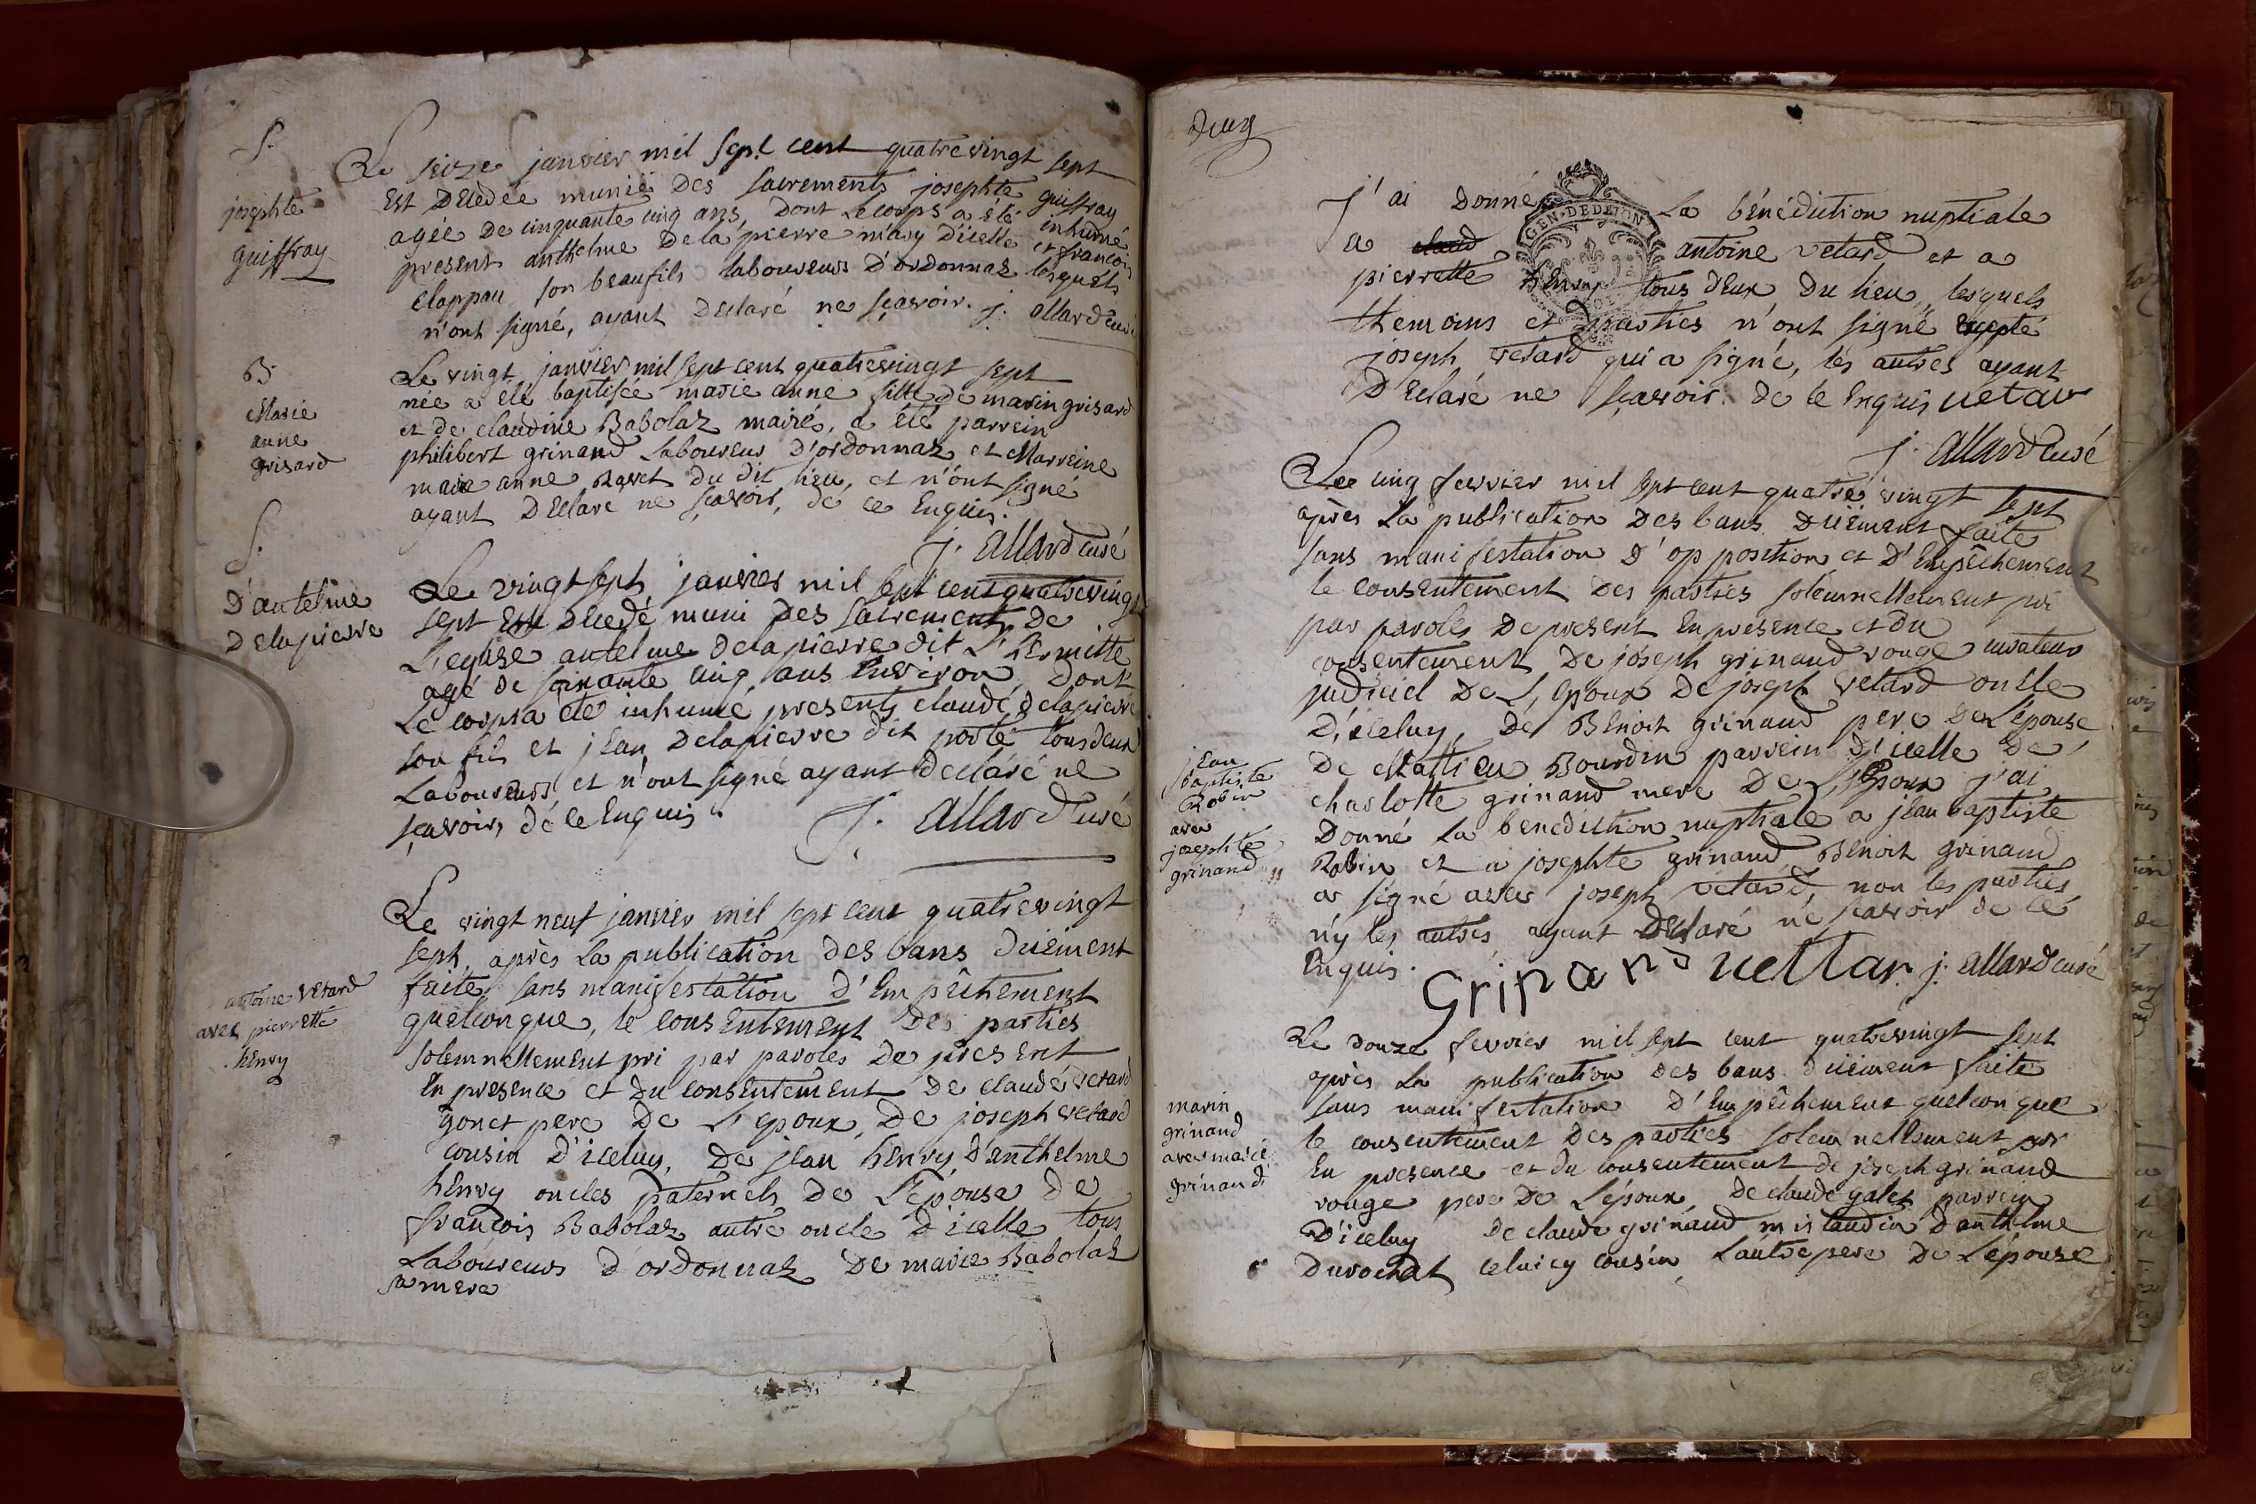 S.
josephte
guiffray
Le seize janvier mil sept cent quatrevingt sept
Est Decedée munie Des sacrements josephte guiffray
agée De cinquante cinq ans, Dont Le corps a été inhumé
present anthelme De la pierre mary D'icelle et francois
clappau son beaufils laboureurs D'ordonnaz lesquels
n'ont signé, ayant Declaré ne sçavoir. j. allard curé
B.
Marie
anne
grisard
Le vingt janvier mil sept cent quatrevingt sept
née a été baptisée marie anne fille de marin grisard
et de claudine Babolaz mariés, a été parrein
philibert grinand Laboureur D'ordonnaz et Marreine
marie anne Ravet du dit lieu, et n'ont signé
ayant Declaré ne sçavoir, de ce Enquis.
J. Allard curé
S.
D'antelme
Delapierre
Le vingt sept janvier mil sept cent quatrevingt
sept Est Decedé muni Des sacrements De
L'eglise antelme delapierre dit L'hermitte
agé de soixante cinq ans Environ, Dont
Le corps a été inhumé presents claude delapierre
son fils et jean Delapierre dit porte tous deux
Laboureurs et n'ont signé ayant declaré ne
sçavoir, de ce Enquis.
J. allard curé
antoine vetard
avec pierrette
henry
Le vingt neuf janvier mil sept cent quatrevingt
sept, après La publication des bans duëment
faite, sans manifestation d'Empêchement
quelconque, le consentement Des parties
solemnellement pri par paroles De present
En presence et du consentement De claude vetard
gonet pere De L'Epoux, De joseph vetard
cousin D'iceluy, De jean henry, D'anthelme
henry oncles paternels De L'épouse De
francois Babolaz autre oncle D'icelle tous
Laboureurs D'ordonnaz De marie Babolaz
sa mere
Deux
GEN. DE DIJON
J'ai Donné La bénédiction nuptiale
a claud antoine vetard et a
pierrette henry tous deux Du lieu, lesquels
themoins et parties n'ont signé Excepté
joseph vetard qui a signé, les autres ayant
Declaré ne sçavoir. de ce Enquis vetar
J. Allard curé
Le cinq fevrier mil sept cent quatre vingt sept
après La publication Des bans Duëment faite
sans manifestation D'opposition et D'Empêchement
le consentement Des parties solemnellement pri
par paroles De present En presence et du
consentement De joseph grinand rouge curateur
judiciel De L'Epoux De joseph vetard oncle
D'iceluy, De Benoit grinand pere De L'épouse
De Mathieu Bourdin parrein D'icelle De
charlotte grinand mere De L'Epoux j'ai
Donné La benediction nuptiale a jean baptiste
Robin et a josephte grinand, Benoit grinand
a signé avec joseph vetard, non les parties
n'y les autres ayant Declaré ne sçavoir de ce
Enquis. Grinand vettar. j. allard curé
jean
baptiste
Robin
avec
josephte
grinand
Le Douze fevrier mil sept cent quatrevingt sept
après La publication Des bans duëment faite
sans manifestation D'Empêchement quelconque
le consentement Des parties solemnellement pri
En presence et du consentement de joseph grinand
rouge pere De L'époux, De claude galet parrein
D'iceluy De claude grinand D'anthelme
Durochat celuicy cousin L'autre pere De L'épouse
marin
grinand
avec marie
grinand